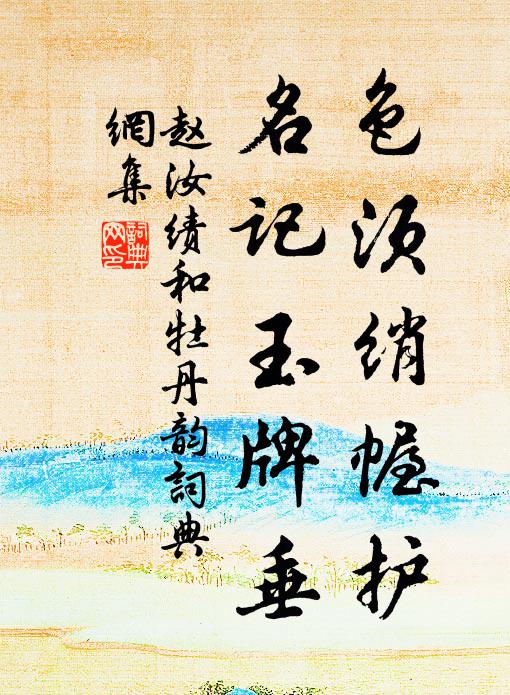 色须绡幄护
名记玉牌垂
赵汝绩和牡丹韵词典
網集
詞典
网印